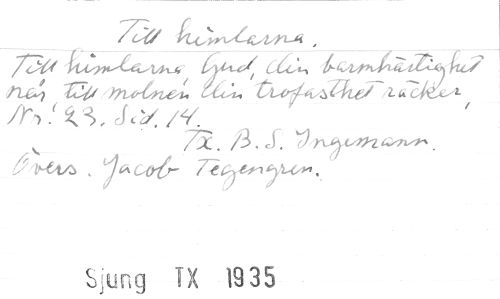 Till himlarna.
Till himlarna, Gud, din barmhärtighet
når, till molnen din trofasthet räcker,
Nr. 23. Sid. 14.
Tx. B. S. Ingemann.
Övers. Jacob Tegengren.
Sjung TX 1935